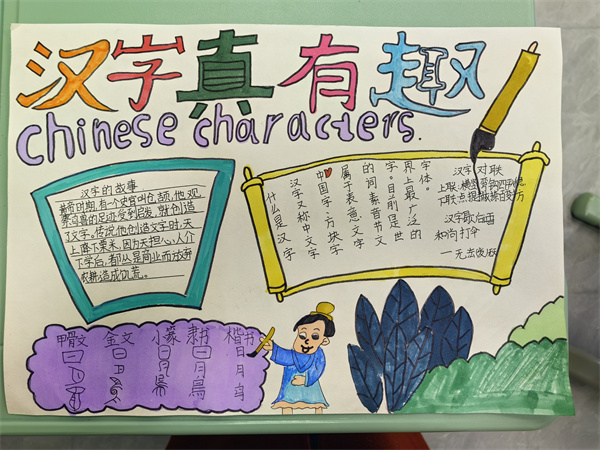 汉字真有趣
Chinese characters.
汉字的故事
黄帝时期,有个史官叫仓颉,他观
察鸟兽的足迹受到启发,就创造
了汉字。传说他创造文字时,天
上降下粟米,因为天担心人
下学后,都从是商业而放弃
农耕造成饥荒。
什么是汉字
汉字又称中文字
中国字、方块字
属于表意文字
的词素音节文
字。目前是世
界上最广泛的
字体。
汉字对联
上联:横竖弯钩四
下联:点提撇捺
汉字歇后语
和尚打伞
一无法
甲骨文 金文 小篆 隶书 楷书
日 日 日 日 日
月 月 月
鸟